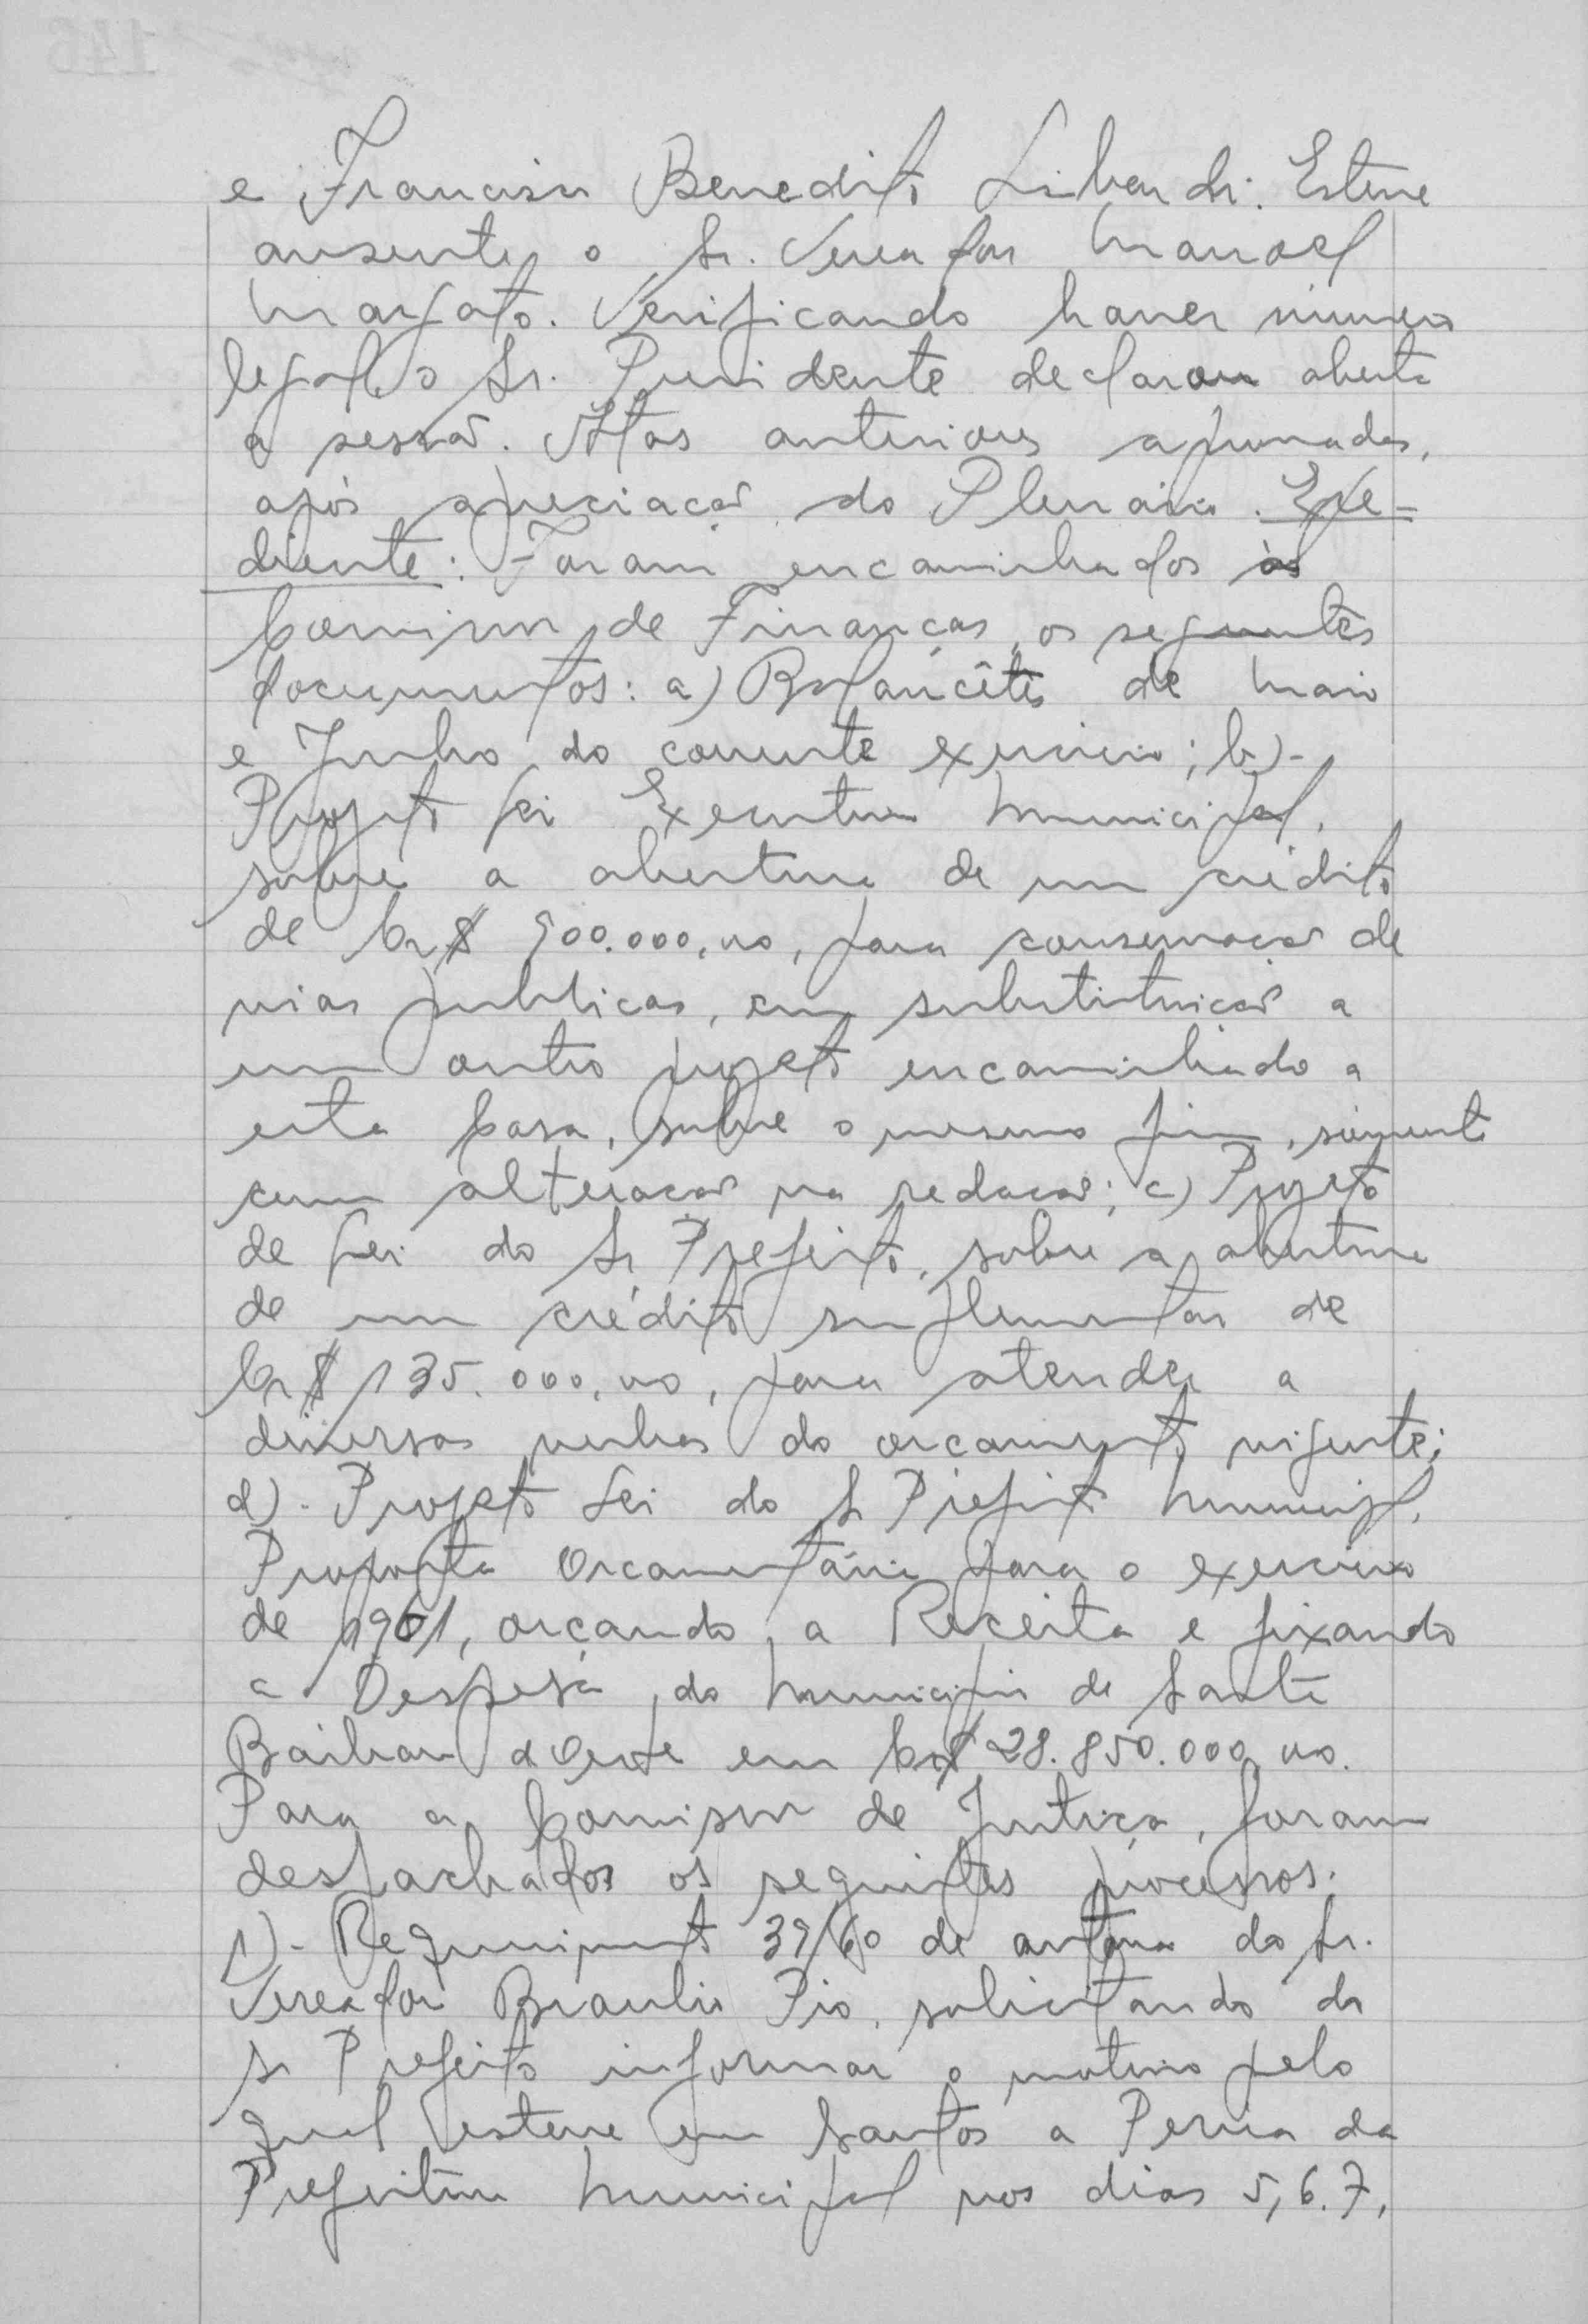 e Francisco Benedito Libardi. Esteve
ausente, o Sr. Vereador Manoel
Margato. Verificando haver número
legal, o Sr. Presidente declarou aberta
a sessão. Atas anteriores aprovadas,
após apreciação do Plenário. Expe-
diente: Foram encaminhados às
Comissão de Finanças, os seguintes
documentos: a) Balancêtes de Maio
e Junho do corrente exercicio; b)-
Projeto lei Executivo Municipal,
sobre a abertura de um crédito
de Cr$ 900.000,00, para conservação de
vias publicas, em substituição a
um outro projeto encaminhado a
esta Casa, sobre o mesmo fim, sómente
com alteração na redação; c) Projeto
de lei do Sr Prefeito, sobre a abertura
de um crédito suplementar de
Cr$ 135.000,00, para atender a
diversas verbas do orçamento vigente;
d)- Projeto Lei do Sr Prefeito Municipal,
Proposta Orcamentária para o exercicio
de 1961, orçando a Receita e fixando
a Despesa do Municipio de Santa
Barbara d'Oeste em Cr$ 28.850.000,00.
Para a Comissão de Justiça, foram
despachados os seguintes processos:
1)- Requerimento 39/60 de autoria do Sr.
Vereador Braulio Pio, solicitando do
Sr Prefeito informar o motivo pelo
qual esteve em Santos a Perua da
Prefeitura Municipal nos dias 5, 6, 7,